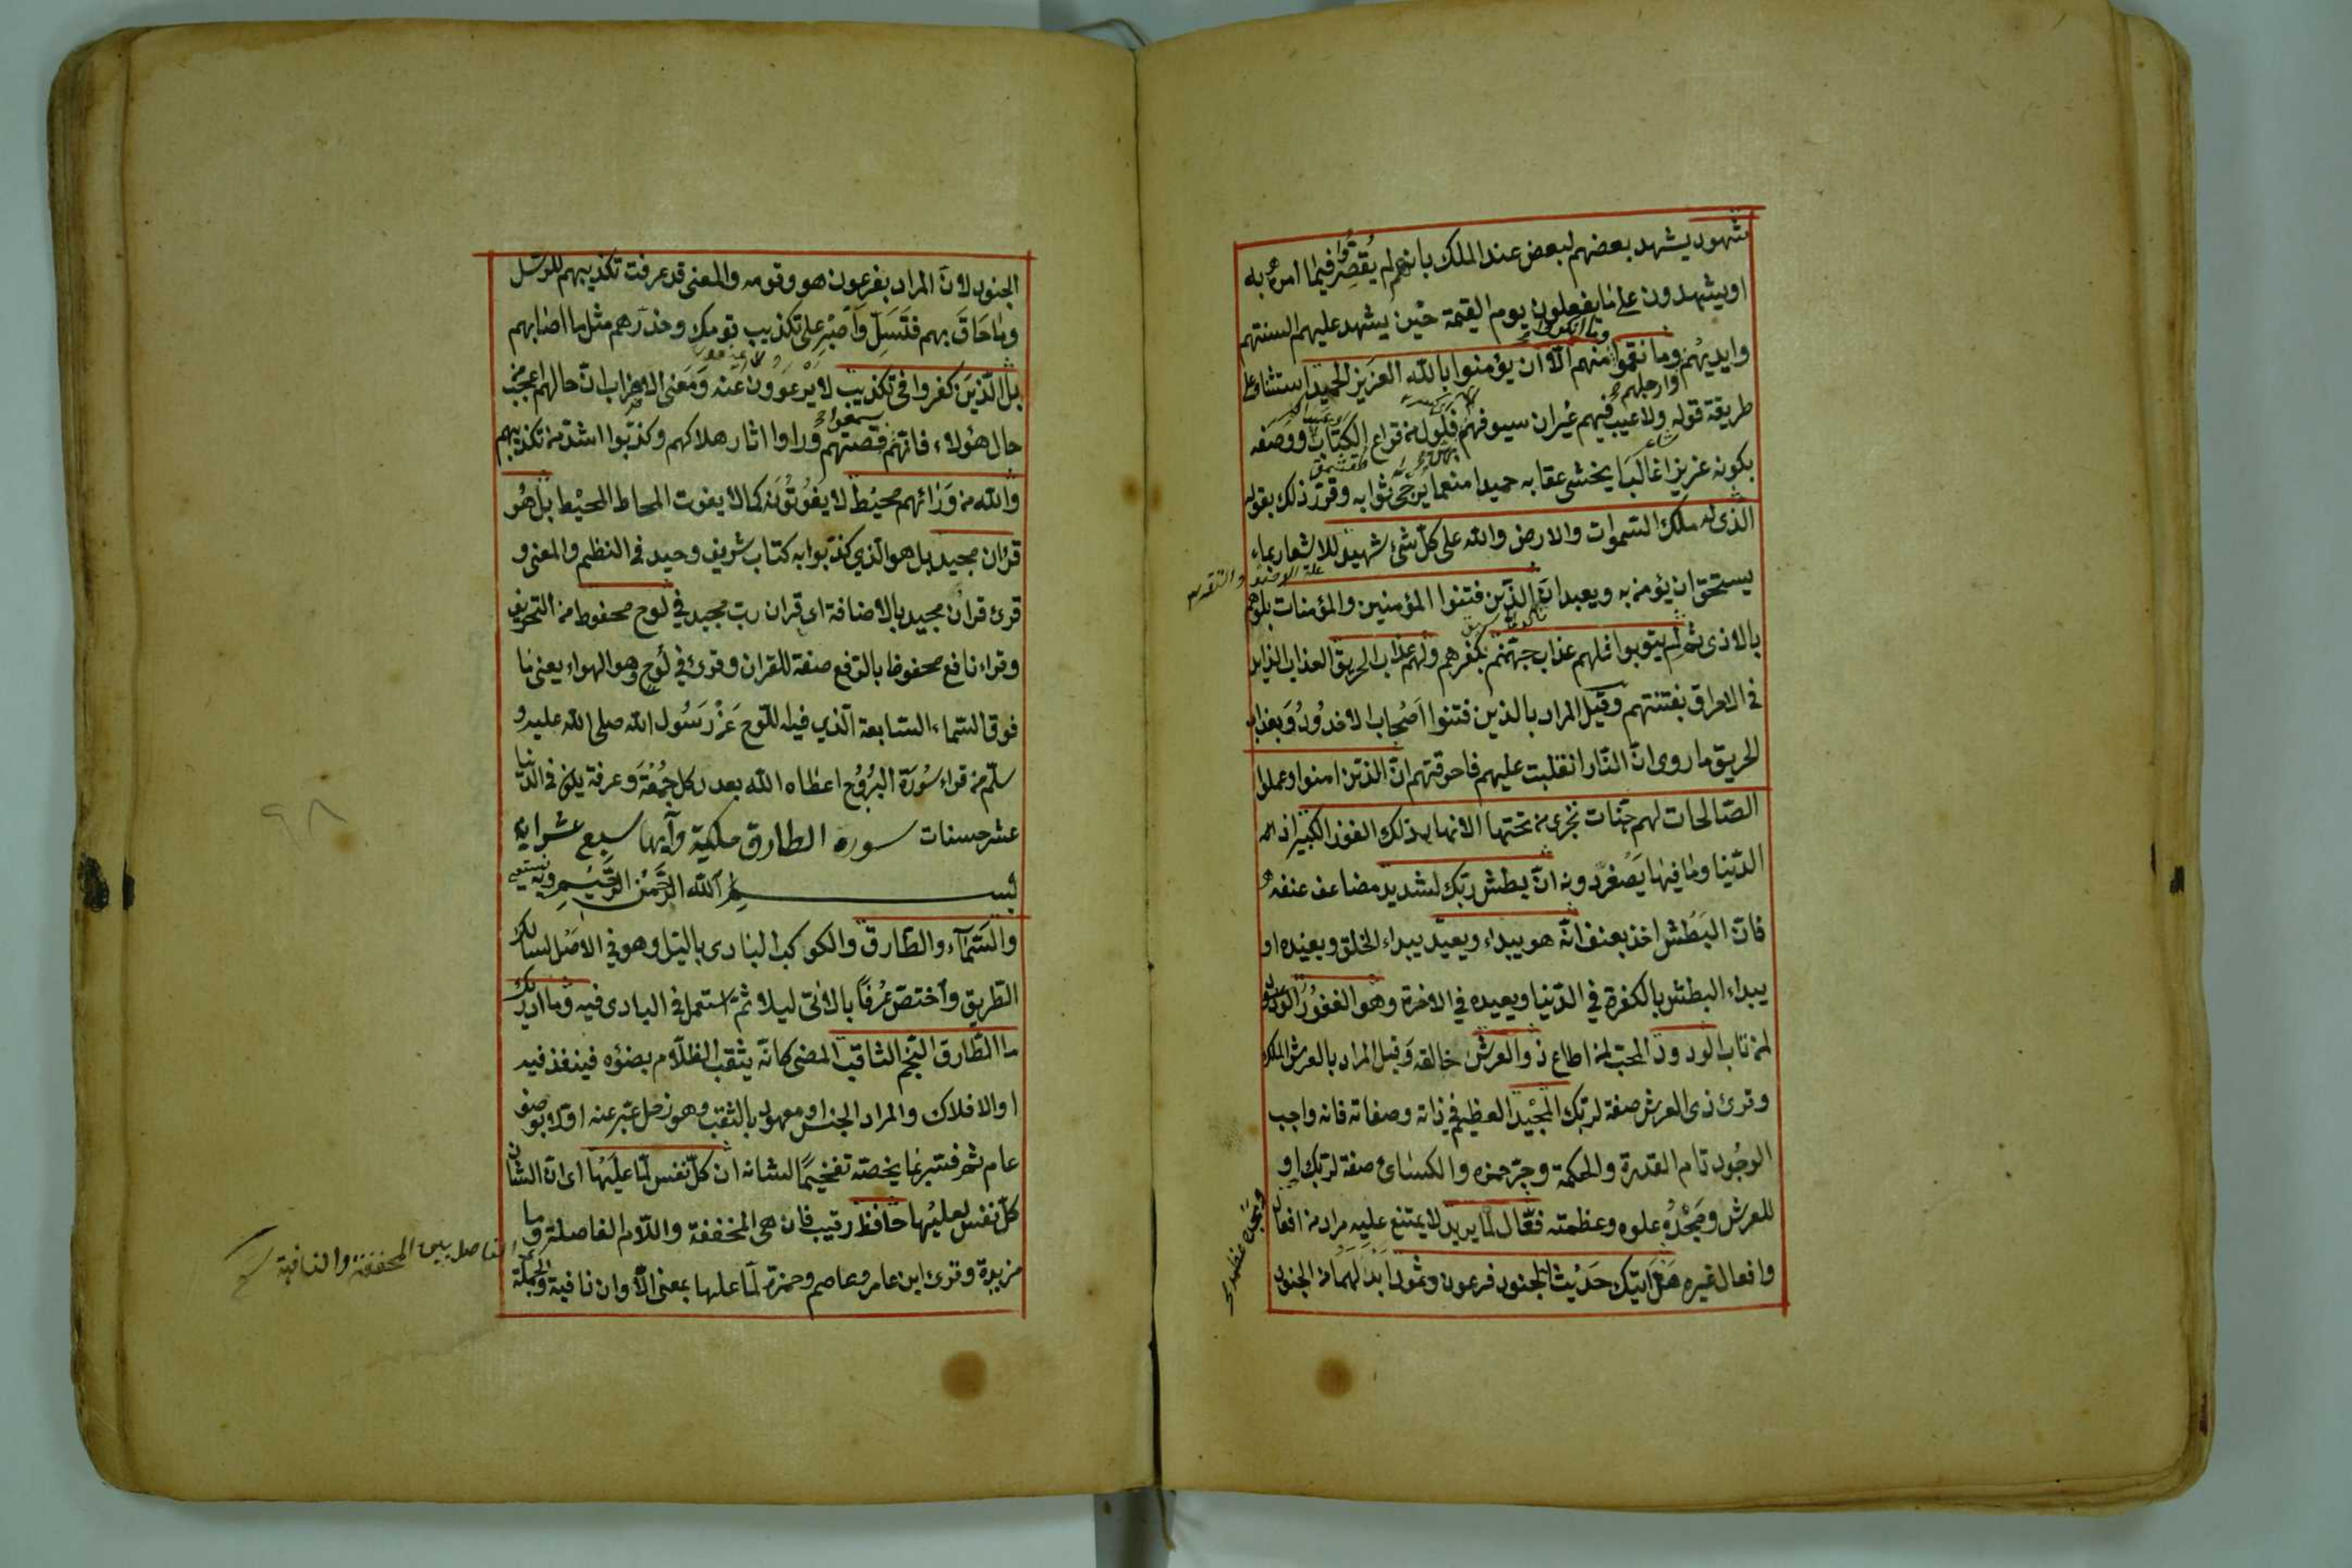 شهود يشهد بعضهم لبعض عند الملك بانهم لم يقصروا فيما امروا به
او يشهدون على ما يفعلون يوم القيمة حين يشهد عليهم السنتهم
وايديهم وارجلهم وما نقموا وما انكروا منهم الا ان يؤمنوا بالله العزيز الحميد استثناء على
طريقة قوله ولا عيب فيهم غير ان سيوفهم فلول من قراع الكتائب ووصفه
بكونه عزيزا غالبا يخشى عقابه حميدا منعما يرجى ثوابه وقرر ذلك بقوله
الذى له ملك السموات والارض والله على كل شئ شهيد للاشعار بما
يستحق ان يؤمن به ويعبد ان الذين فتنوا المؤمنين والمؤمنات بلوهم
بالاذى ثم لم يتوبوا فلهم عذاب جهنم بكفرهم ولهم عذاب الحريق العذاب الزايد
فى الاحراق بفتنتهم وقيل المراد بالذين فتنوا اصحاب الاخدود وبعذاب
الحريق ما روى ان النار انقلبت عليهم فاحرقتهم ان الذين امنوا وعملوا
الصالحات لهم جنات تجرى من تحتها الانهار ذلك الفوز الكبير اذ
الدنيا وما فيها يصغر دونه ان بطش ربك لشديد مضاعف عنفه
فان البطش اخذ بعنف انه هو يبداء ويعيد يبداء الخلق ويعيده او
يبداء البطش بالكفرة في الدنيا ويعيده في الاخرة وهو الغفور الودود
لمن تاب الودود المحب لمن اطاع ذو العرش خالقه وقيل المراد بالعرش الملك
وقرئ ذى العرش صفة لربك المجيد العظيم في ذاته وصفاته فانه واجب
الوجود تام القدرة والحكمة وجره حمزه والكسائى صفة لربك او
للعرش ومجده علوه وعظمته فعال لما يريد لا يمتنع عليه مراد من افعاله
وافعال غيره هل اتيك حديث الجنود فرعون وثمود ابدلهما من الجنود
الجنود لان المراد بفرعون هو وقومه والمعنى قد عرفت تكذيبهم للرسل
وما حاق بهم فتسل واصبر على تكذيب قومك وحذرهم مثل ما اصابهم
بل الذين كفروا فى تكذيب لا يرعوون عنه ومعنى الاضراب ان حالهم اعجب من
حال هؤلاء فانهم سمعوا قصتهم وراوا اثار هلاكهم وكذبوا اشد من تكذيبهم
والله من ورائهم محيط لا يفوتونه كما لا يفوت المحاط المحيط بل هو
قران مجيد بل هو الذي كذبوا به كتاب شريف وحيد فى النظم والمعنى و
قرئ قران مجيد بالاضافة اى قران رب مجيد في لوح محفوظ من التحريف
وقراء نافع محفوظ بالرفع صفة للقران وقرئ في لوح وهو الهواء يعنى ما
فوق السماء السابعة الذي فيه اللوح عن رسول الله صلى الله عليه و
سلم من قراء سورة البروج اعطاه الله بعدد كل جمعة وعرفة يكون فى الدنيا
عشر حسنات سورة الطارق مكية وآيها سبع عشر اية
بسم الله الرحمن الرحيم وبه نستعين
والسماء والطارق والكوكب البادى بالليل وهو في الاصل لسالك
الطريق واختص عرفا بالاتى ليلا ثم استعمل فى البادى فيه وما ادريك
ما الطارق النجم الثاقب المضى كانه يثقب الظلام بضوئه فينفذ فيه
او الافلاك والمراد الجنس او معهود بالثقب وهو زحل عبر عنه اولا بوصف
عام ثم فسر بما يخصه تفخيما لشانه ان كل نفس لما عليها اى ان الشان
كل نفس لعليها حافظ رقيب فان هى المخففة واللام الفاصلة وما
مزيدة وقرئ ابن عامر وعاصم وحمزة لما عليها بمعنى الا وان نافية والجملة
الفاصل بين المخففة والنافية
٩٨